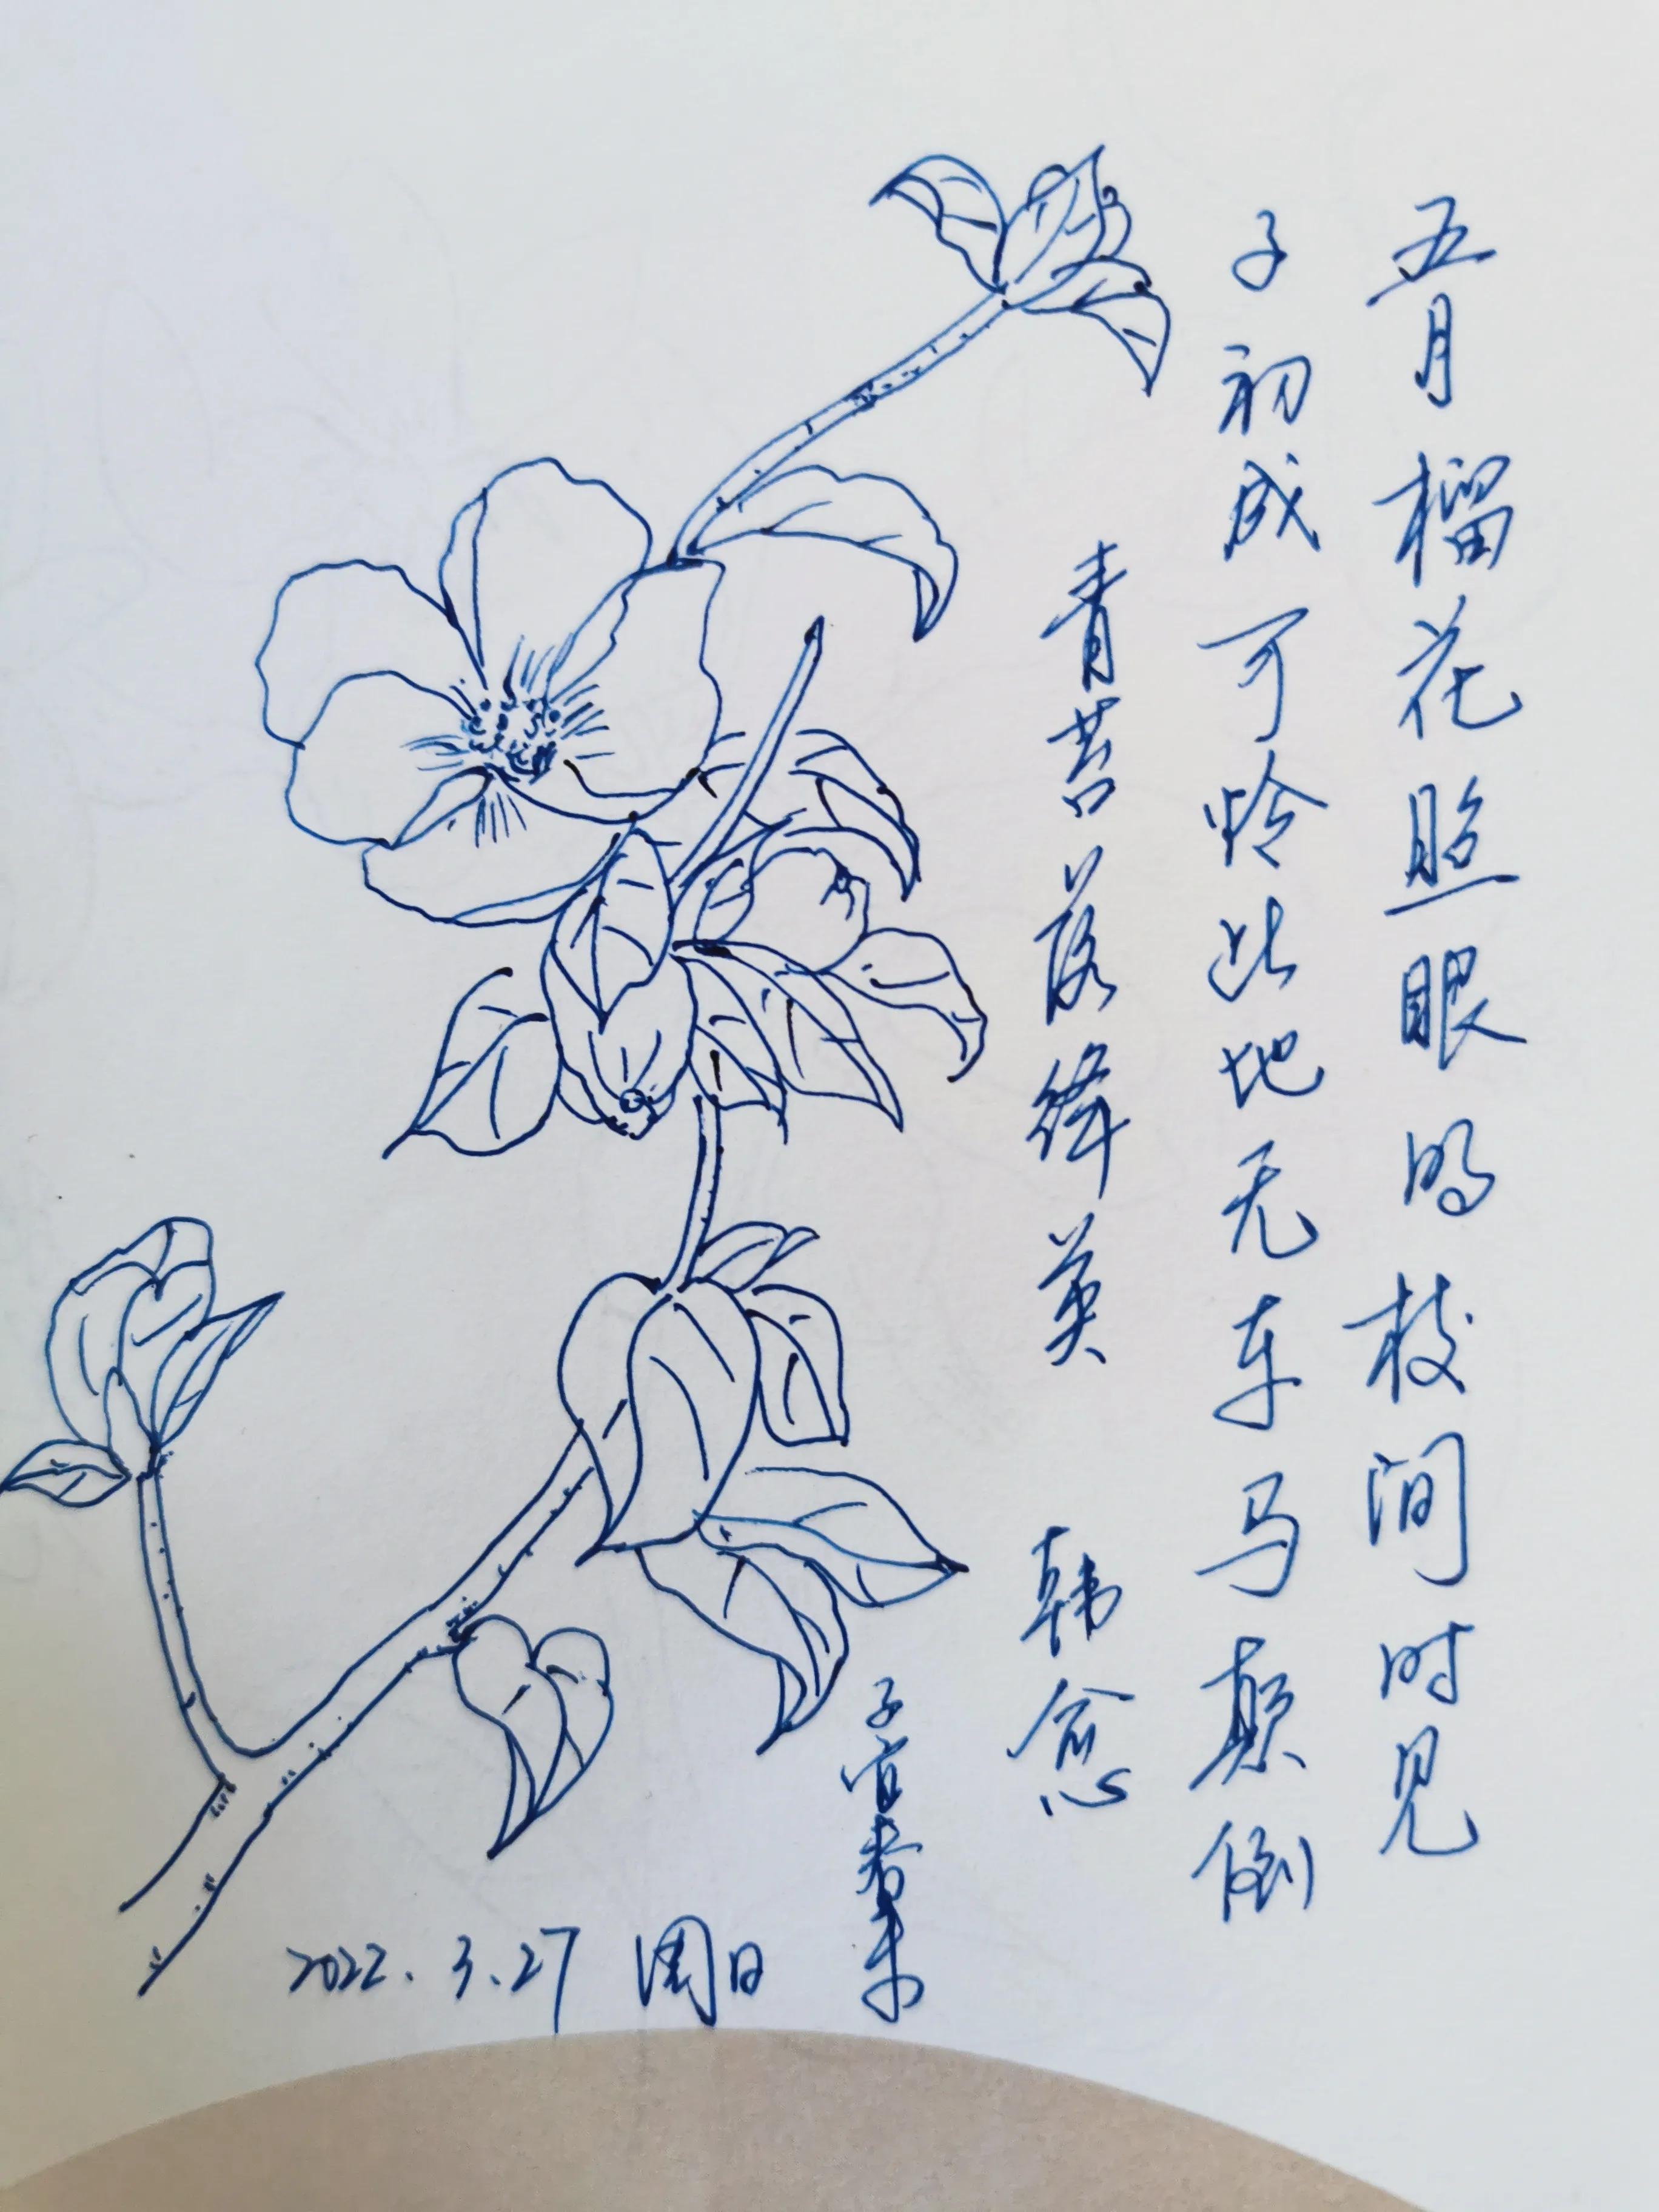 五月榴花照眼明枝间时见
子初成可怜此地无车马颠倒
青苔落绛英 韩愈
2022.3.27 周日